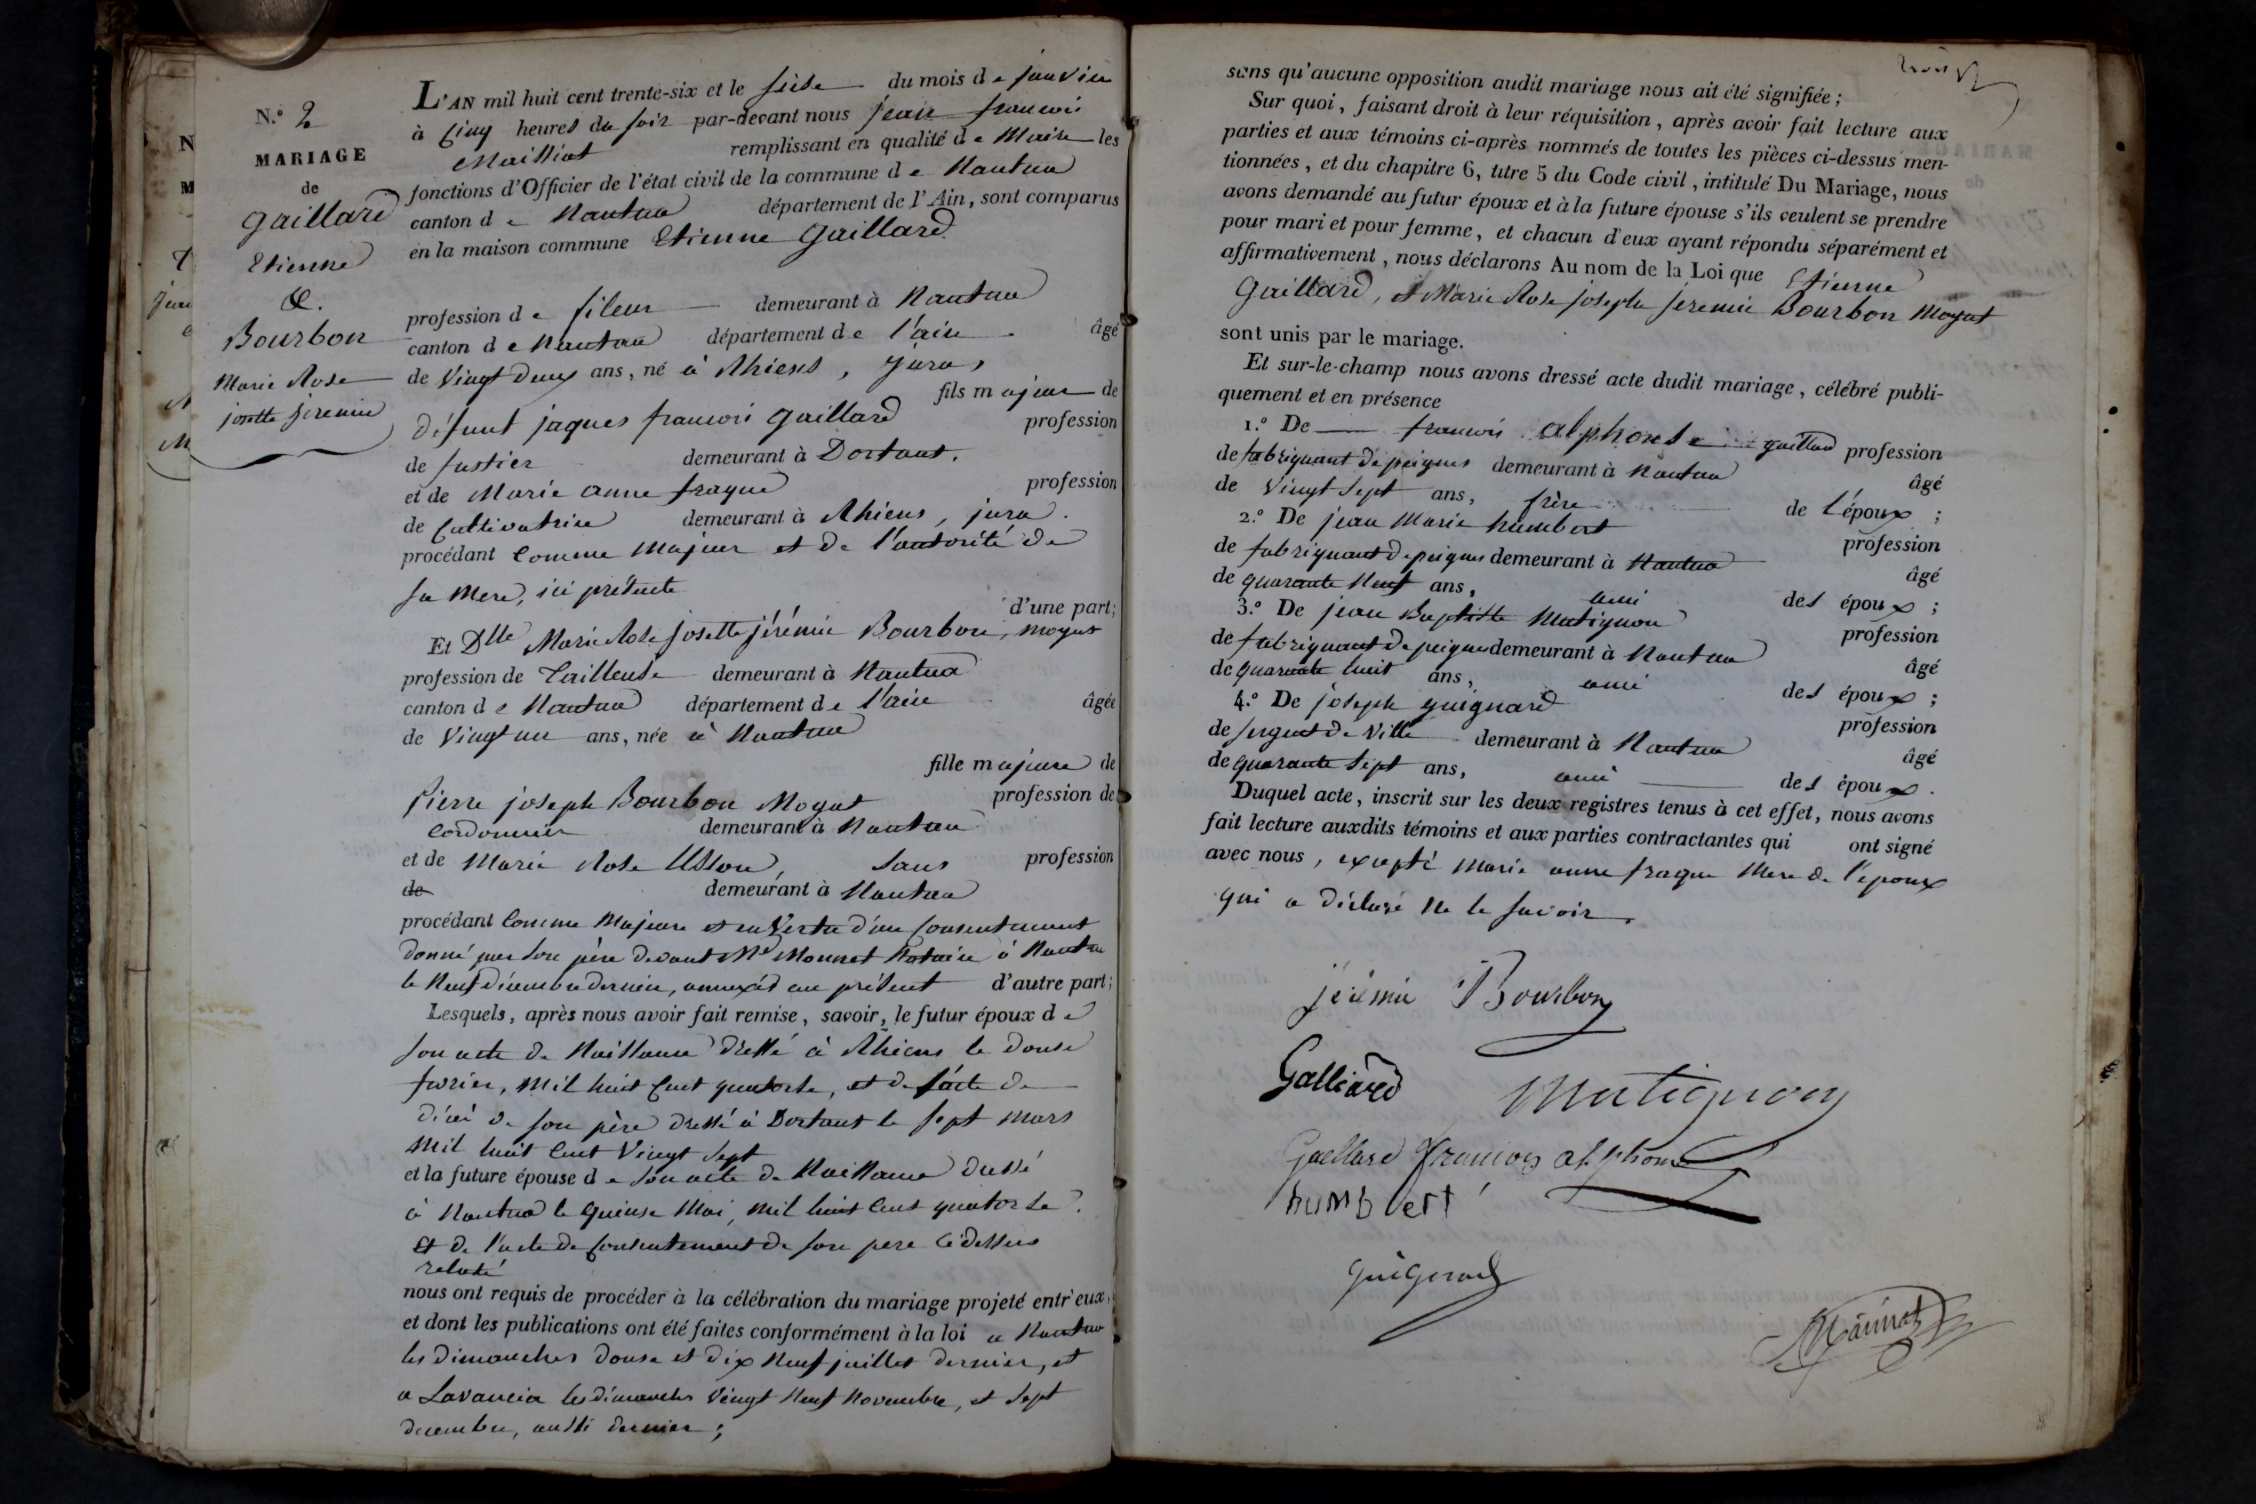 N.º 2
MARIAGE
de
Gaillard
Etienne
&.
Bourbon
Marie Rose
josette jeremie
L'AN mil huit cent trente-six et le seize du mois de janvier
à Cinq heures du soir par-devant nous jean francois
Mailliat remplissant en qualité de Maire les
fonctions d'Officier de l'état civil de la commune de Nantua
canton de Nantua département de l'Ain, sont comparus
en la maison commune Etienne Gaillard
profession de fileur demeurant à Nantua
canton de Nantua département de l'ain âgé
de Vingt deux ans, né à Rhiens, jura,
fils majeur de
défunt jaques francois Gaillard profession
de fustier demeurant à Dortant.
et de Marie anne frague profession
de Cultivatrice demeurant à Rhiens, jura.
procédant Comme Majeur et de l'autorité de
sa Mere, ici présente
d'une part;
Et Dlle Marie Rose josette jérémie Bourbon, moyat
profession de Tailleuse demeurant à Nantua
canton de Nantua département de l'ain âgée
de Vingt un ans, née à Nantua
fille majeure de
Pierre joseph Bourbon Moyat profession de
Cordonnier demeurant à Nantua
et de Marie Rose Usson, sans profession
de demeurant à Nantua
procédant Comme Majeure et en Vertu d'un Consentement
donné par son père devant Me Monnet Notaire à Nantua
le Neuf décembre dernier, annexés au présent d'autre part;
Lesquels, après nous avoir fait remise, savoir, le futur époux de
son acte de Naissance dressé à Rhiens le douse
fevrier, mil huit Cent quatorse, et de l'acte de
décès de son père dressé à Dortant le sept mars
mil huit Cent Vingt sept
et la future épouse de son acte de Naissance dressé
à Nantua le quinse Mai, mil huit Cent quatorse.
Et de l'acte de Consentement de son pere Ci dessus
relaté
nous ont requis de procéder à la célébration du mariage projeté entr'eux,
et dont les publications ont été faites conformément à la loi a Nantua
les dimanches douse et dix Neuf juillet dernier, et
a Lavancia les dimanches Vingt Neuf Novembre, et sept
decembre, aussi dernier;
sans qu'aucune opposition audit mariage nous ait été signifiée;
Sur quoi, faisant droit à leur réquisition, après avoir fait lecture aux
parties et aux témoins ci-après nommés de toutes les pièces ci-dessus men-
tionnées, et du chapitre 6, titre 5 du Code civil, intitulé Du Mariage, nous
avons demandé au futur époux et à la future épouse s'ils veulent se prendre
pour mari et pour femme, et chacun d'eux ayant répondu séparément et
affirmativement, nous déclarons Au nom de la Loi que Etienne
Gaillard, et Marie Rose josephe jeremie Bourbon Moyat
sont unis par le mariage.
Et sur-le-champ nous avons dressé acte dudit mariage, célébré publi-
quement et en présence
1.º De francois alphonse gaillard profession
de fabriquant de peignes demeurant à Nantua âgé
de Vingt Sept ans, frère de l'époux;
2.º De jean Marie humbert profession
de fabriquant de peignes demeurant à Nantua âgé
de quarante Neuf ans, ami des époux;
3.º De jean Baptiste Matignon profession
de fabriquant de peignes demeurant à Nantua âgé
de quarante huit ans, ami des époux;
4.º De joseph guignard profession
de sergent de Ville demeurant à Nantua âgé
de quarante sept ans, ami des époux.
Duquel acte, inscrit sur les deux registres tenus à cet effet, nous avons
fait lecture auxdits témoins et aux parties contractantes qui ont signé
avec nous, excepté Marie anne fraque Mere de l'epoux
qui a déclaré Ne le savoir.
jérémie Bourbon
Galliard
Matignon
Gaillard francois alphonse
humbert
guignard